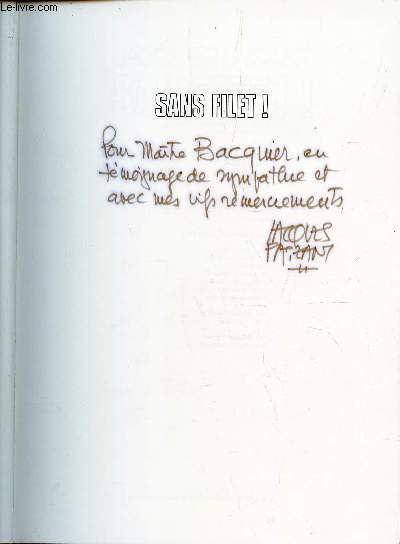 Le-livre.com
SANS FILET !
Pour Maître Bacquier, en
témoignage de sympathie et
avec mes vifs remerciements
JACQUES
FAIZANT